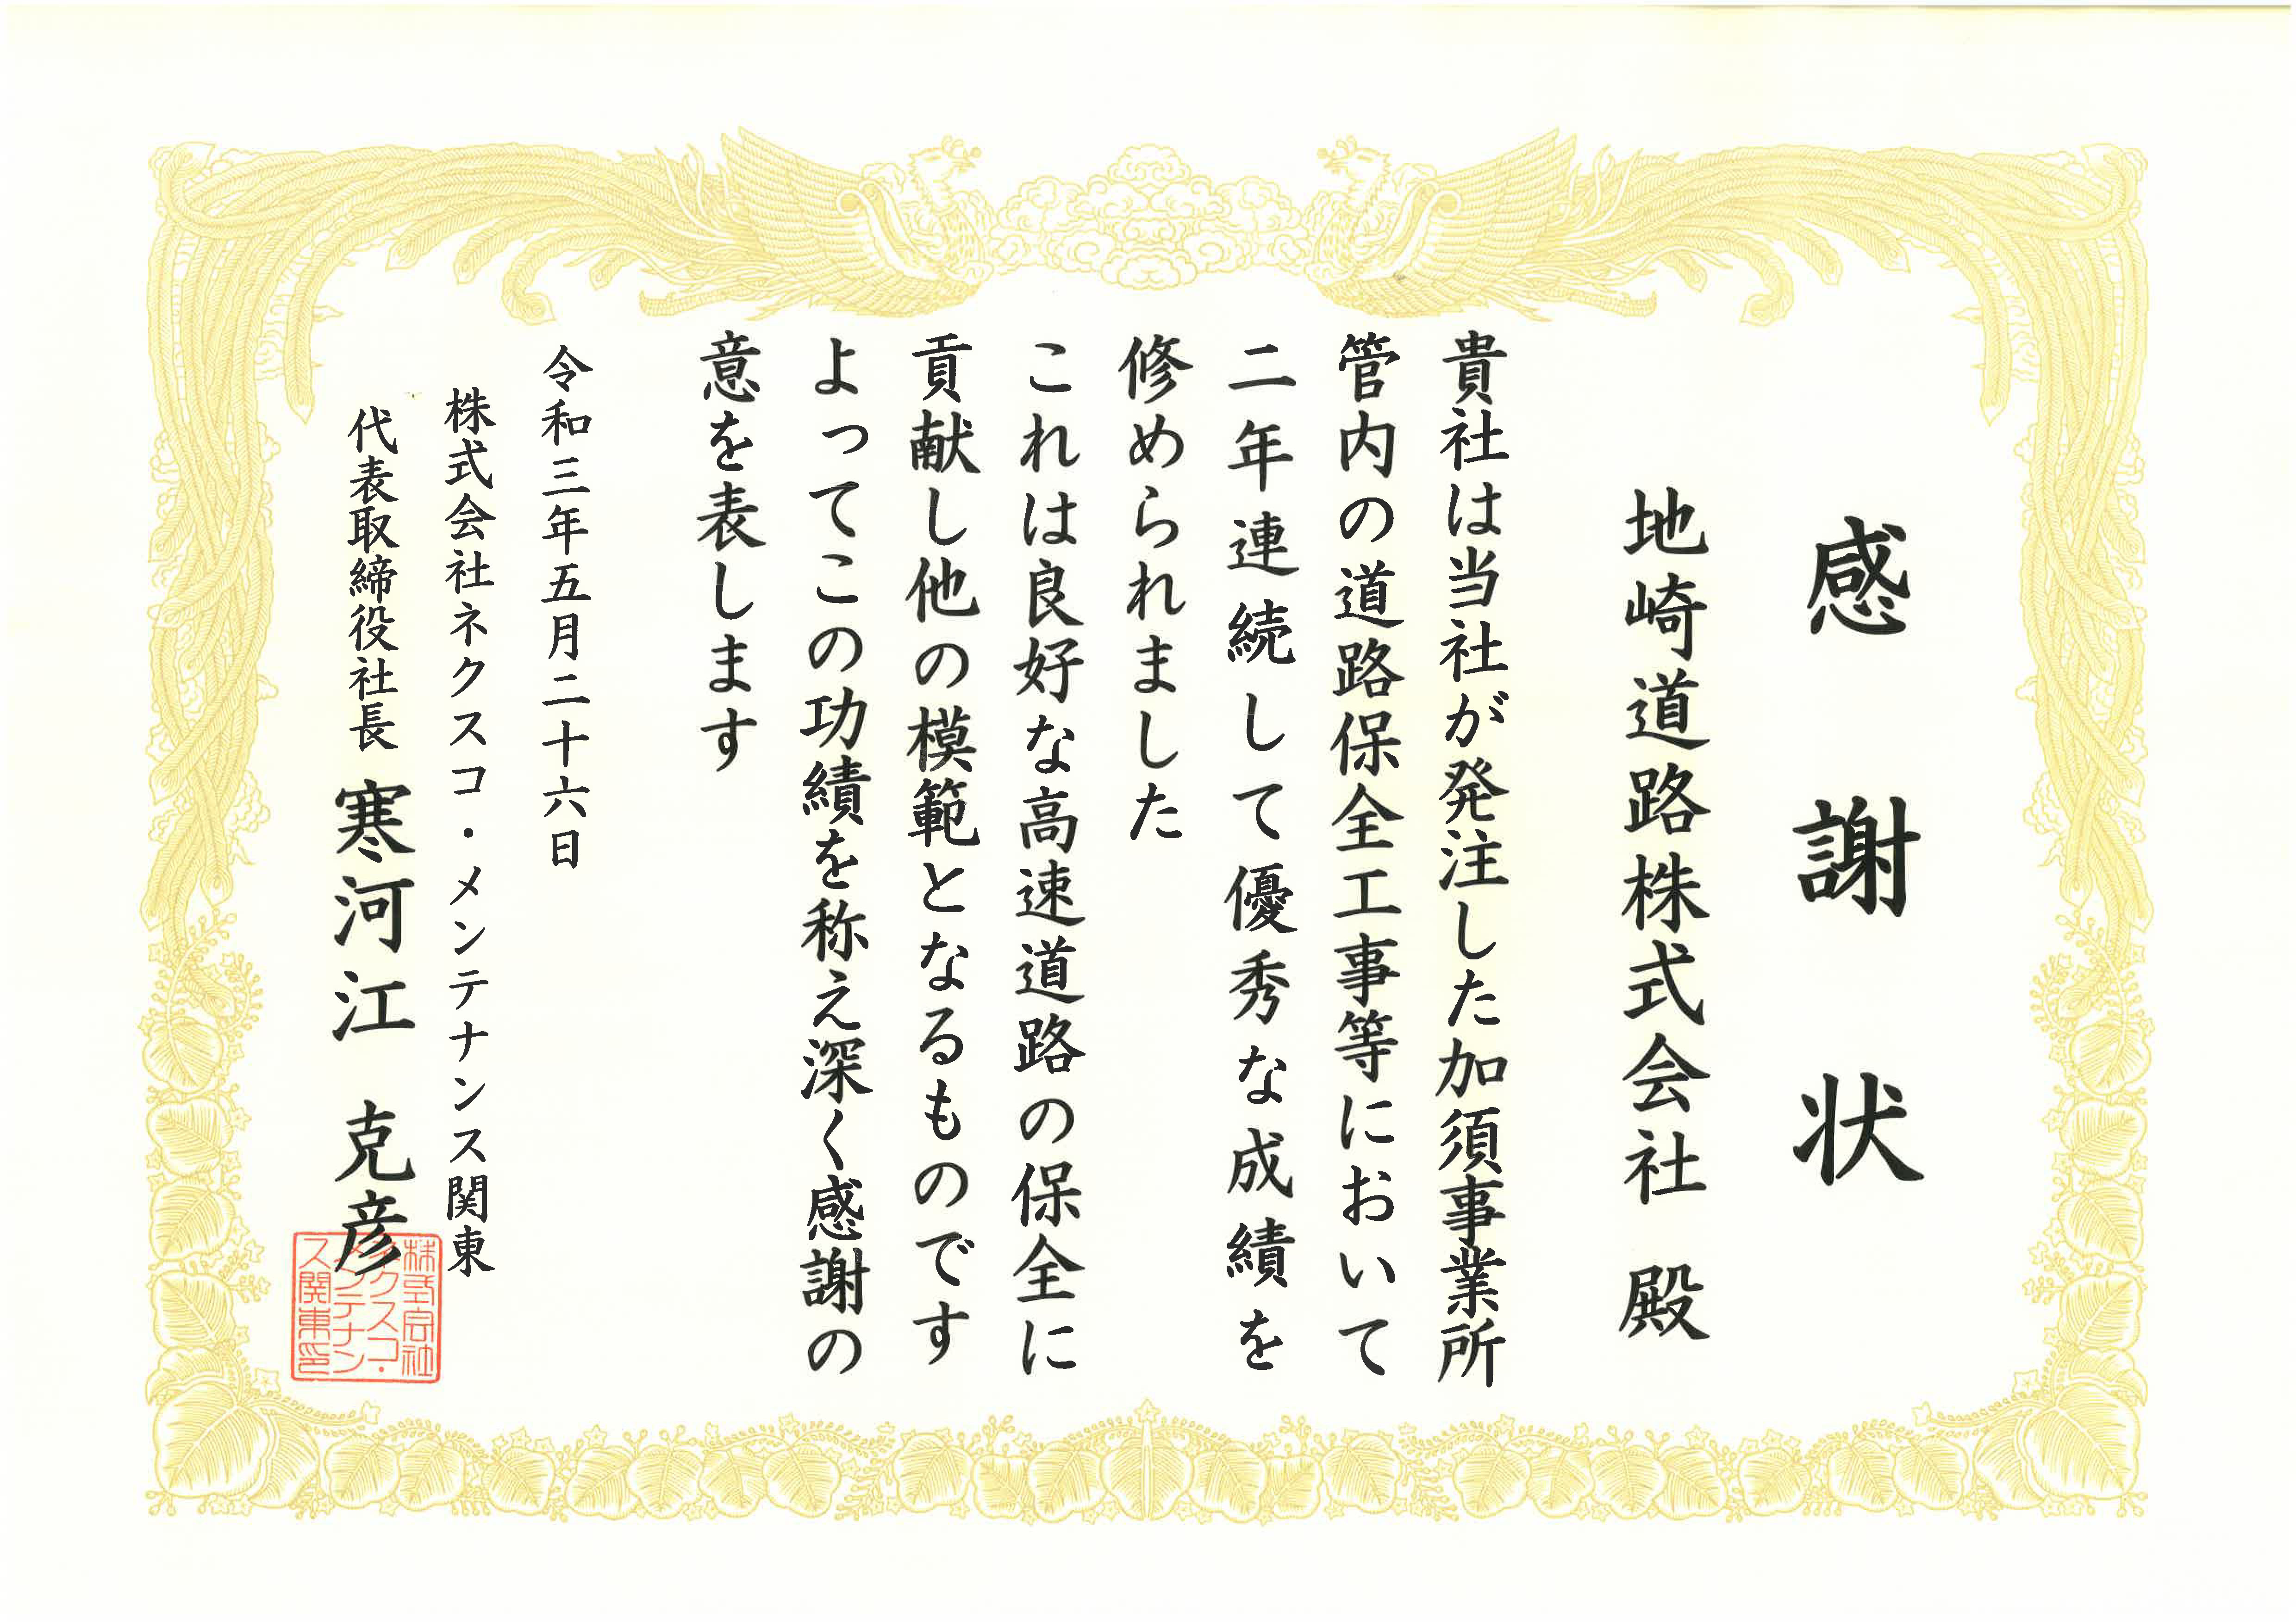 感謝状
地崎道路株式会社 殿
貴社は当社が発注した加須事業所
管内の道路保全工事等において
二年連続して優秀な成績を
修められました
これは良好な高速道路の保全に
貢献し他の模範となるものです
よってこの功績を称え深く感謝の
意を表します
令和三年五月二十六日
株式会社ネクスコ・メンテナンス関東
代表取締役社長 寒河江 克彦
株式会社
ネクスコ・
メンテナン
ス関東印